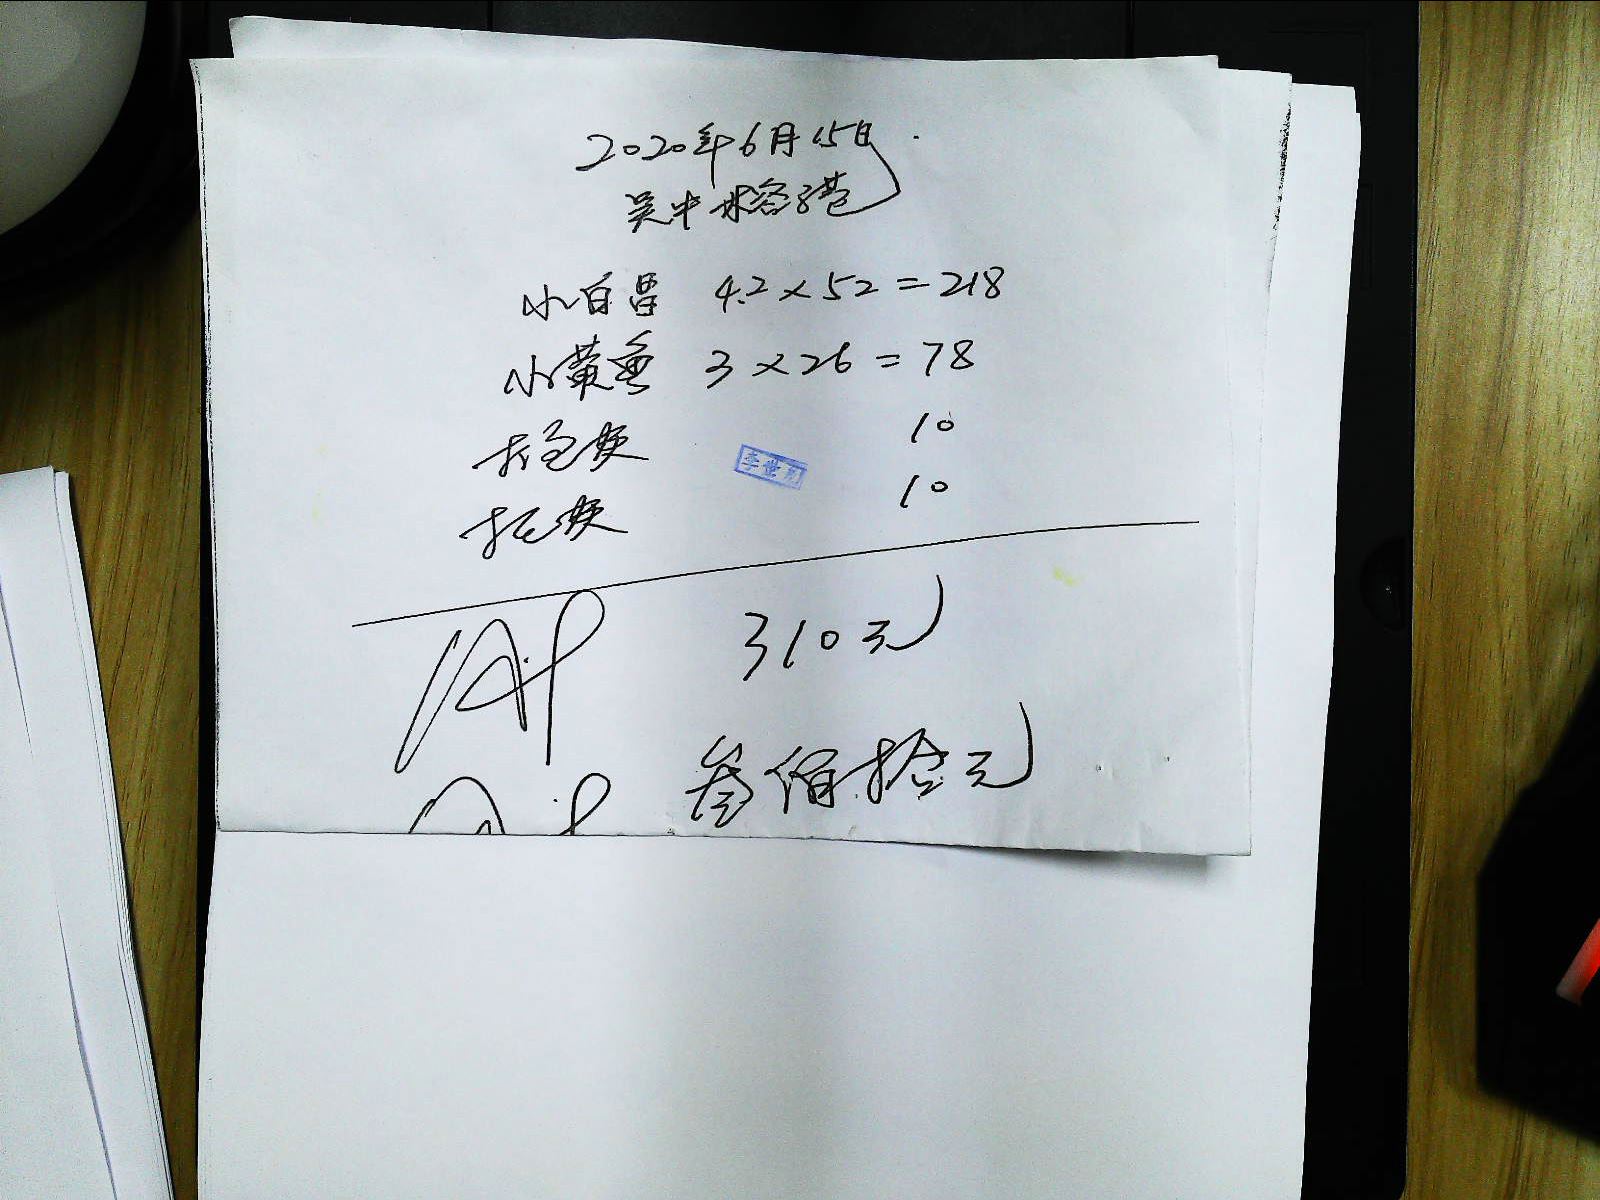 2020年6月15日
吴中水容港
小白昌 4.2×52=218
小黄鱼 3×26=78
打包费 10
李世
托费 10
310元
叁佰拾元